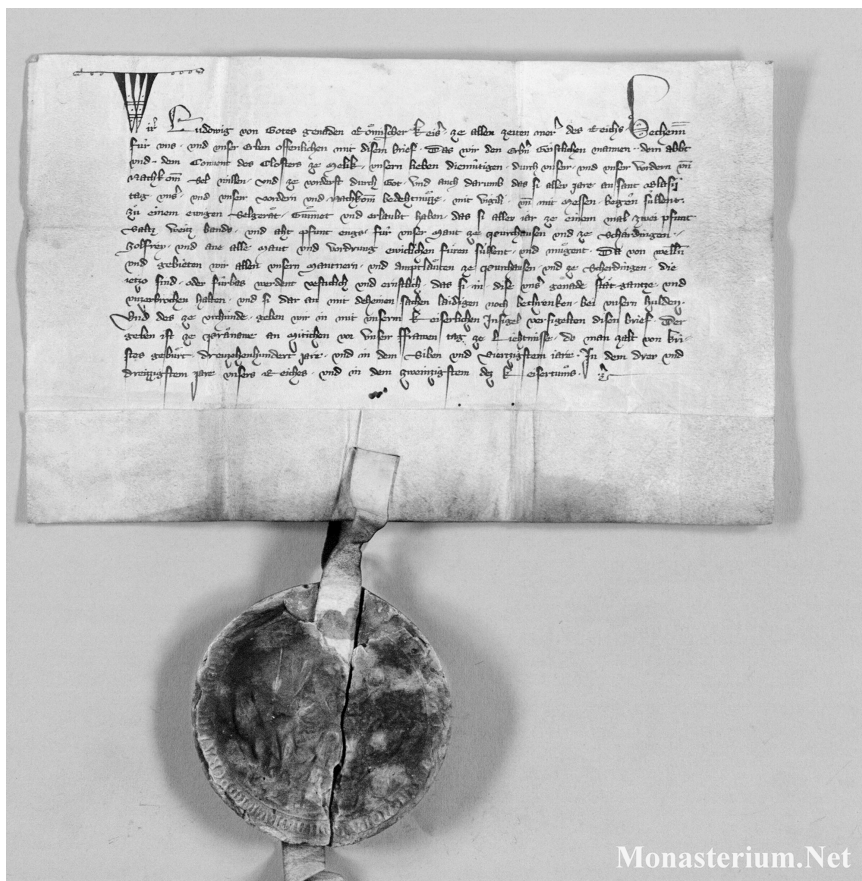 Wir Ludwig von Gotes genaden Römischer Keis᾽ ze allen zeiten mer᾽ des Reichs Bechenn̄
für uns und unser erben offenlichen mit disem brief Daz wir den erbn̄ Geistlichen mannen dem abbt
und dem Convent des Closters ze Melik unsern lieben diemütigen durch unser und unser vordern vn̄
Nachkom̄ sel willen und ze vorderst durch Got und auch darumb das si aller jare an sant Blasij
tag uns᾽s und unser vordern und nachkom̄ bedehtnüzze mit vigili vn̄ mit messen begen süllent
zü einem ewigen Selgerät Gunnet und erlaubt haben das si aller iar ze einem mal zwei pfunt
Saltz weitz bands und aht pfunt engs für unser maut ze Purchausen und ze Schärdingen
zolfrey und ane alle maut und vordrung ewiclichen füren süllent und mügent Da von welln̄
und gebieten wir allen unsern mautnern und amptläuten ze Purchausen und ze Scherdingen die
ietzo sind oder fürbas werdent vestclich und ernstlich das si in dise uns᾽ genade stät gantze und
unzerbrochen halten und si dar an mit deheinen sachen laidigen noch bechrenken bei unsern hulden
Und des ze urchünde geben wir in mit unserm Keiserlichen Insigel versigelten disen brief Der
geben ist ze Päränawe an Mitichen vor unser ffrawen tag ze Liehtmisse do man zalt von Kri
stes gebürt dreuzehenhundert jare und in dem Siben und Viertzigstem iare In dem drey und
dreizzigstem jare unsers Reiches und in dem zweintzigstem des Keisertums
Monasterium.Net